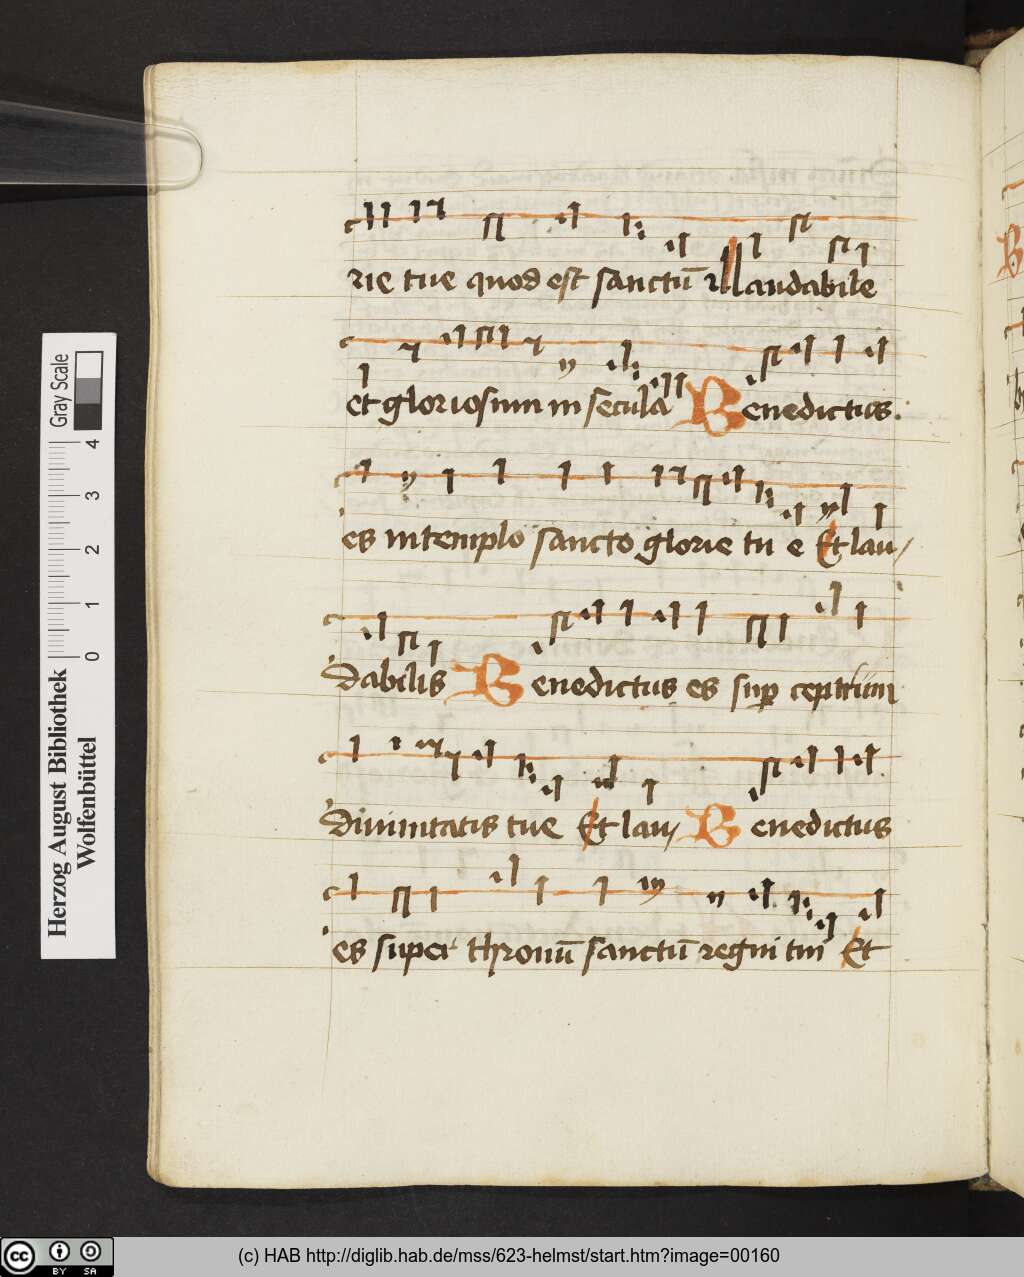 rie tue quod est sanctū illaudabile
et gloriosum in secula Benedictus.
es in templo sancto glorie tu e Et lau/
dabilis Benedictus es sup ceptrum
diuinitatis tue Et lau/ Benedictus
es super thronū sanctū regni tui Et
Gray Scale
4
3
2
1
0
Herzog August Bibliothek
Wolfenbüttel
cc BY SA
(c) HAB http://diglib.hab.de/mss/623-helmst/start.htm?image=00160